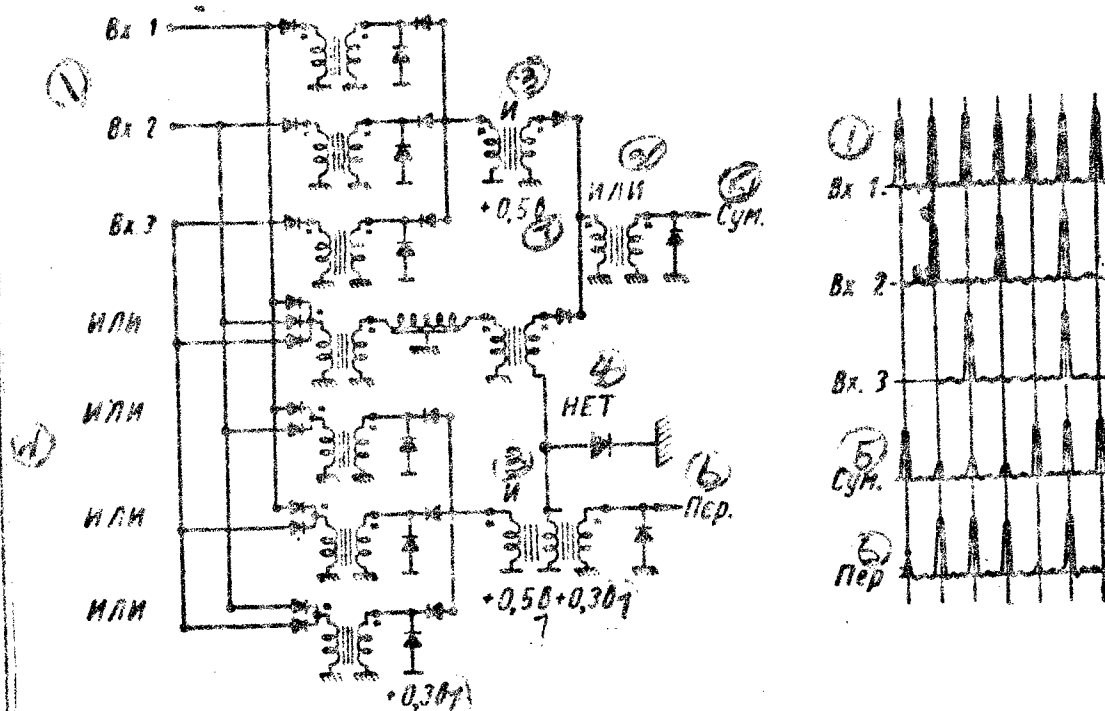 Вх 1
Вх 2
Вх 3
ИЛИ
ИЛИ
ИЛИ
ИЛИ
И
3
+0,5В
ИЛИ
Сум.
5
4
НЕТ
3
И
6
Пер.
+0,5В +0,3В
+0,3В
1
Вх 1.
Вх 2
Вх. 3
5
Сум.
Пер